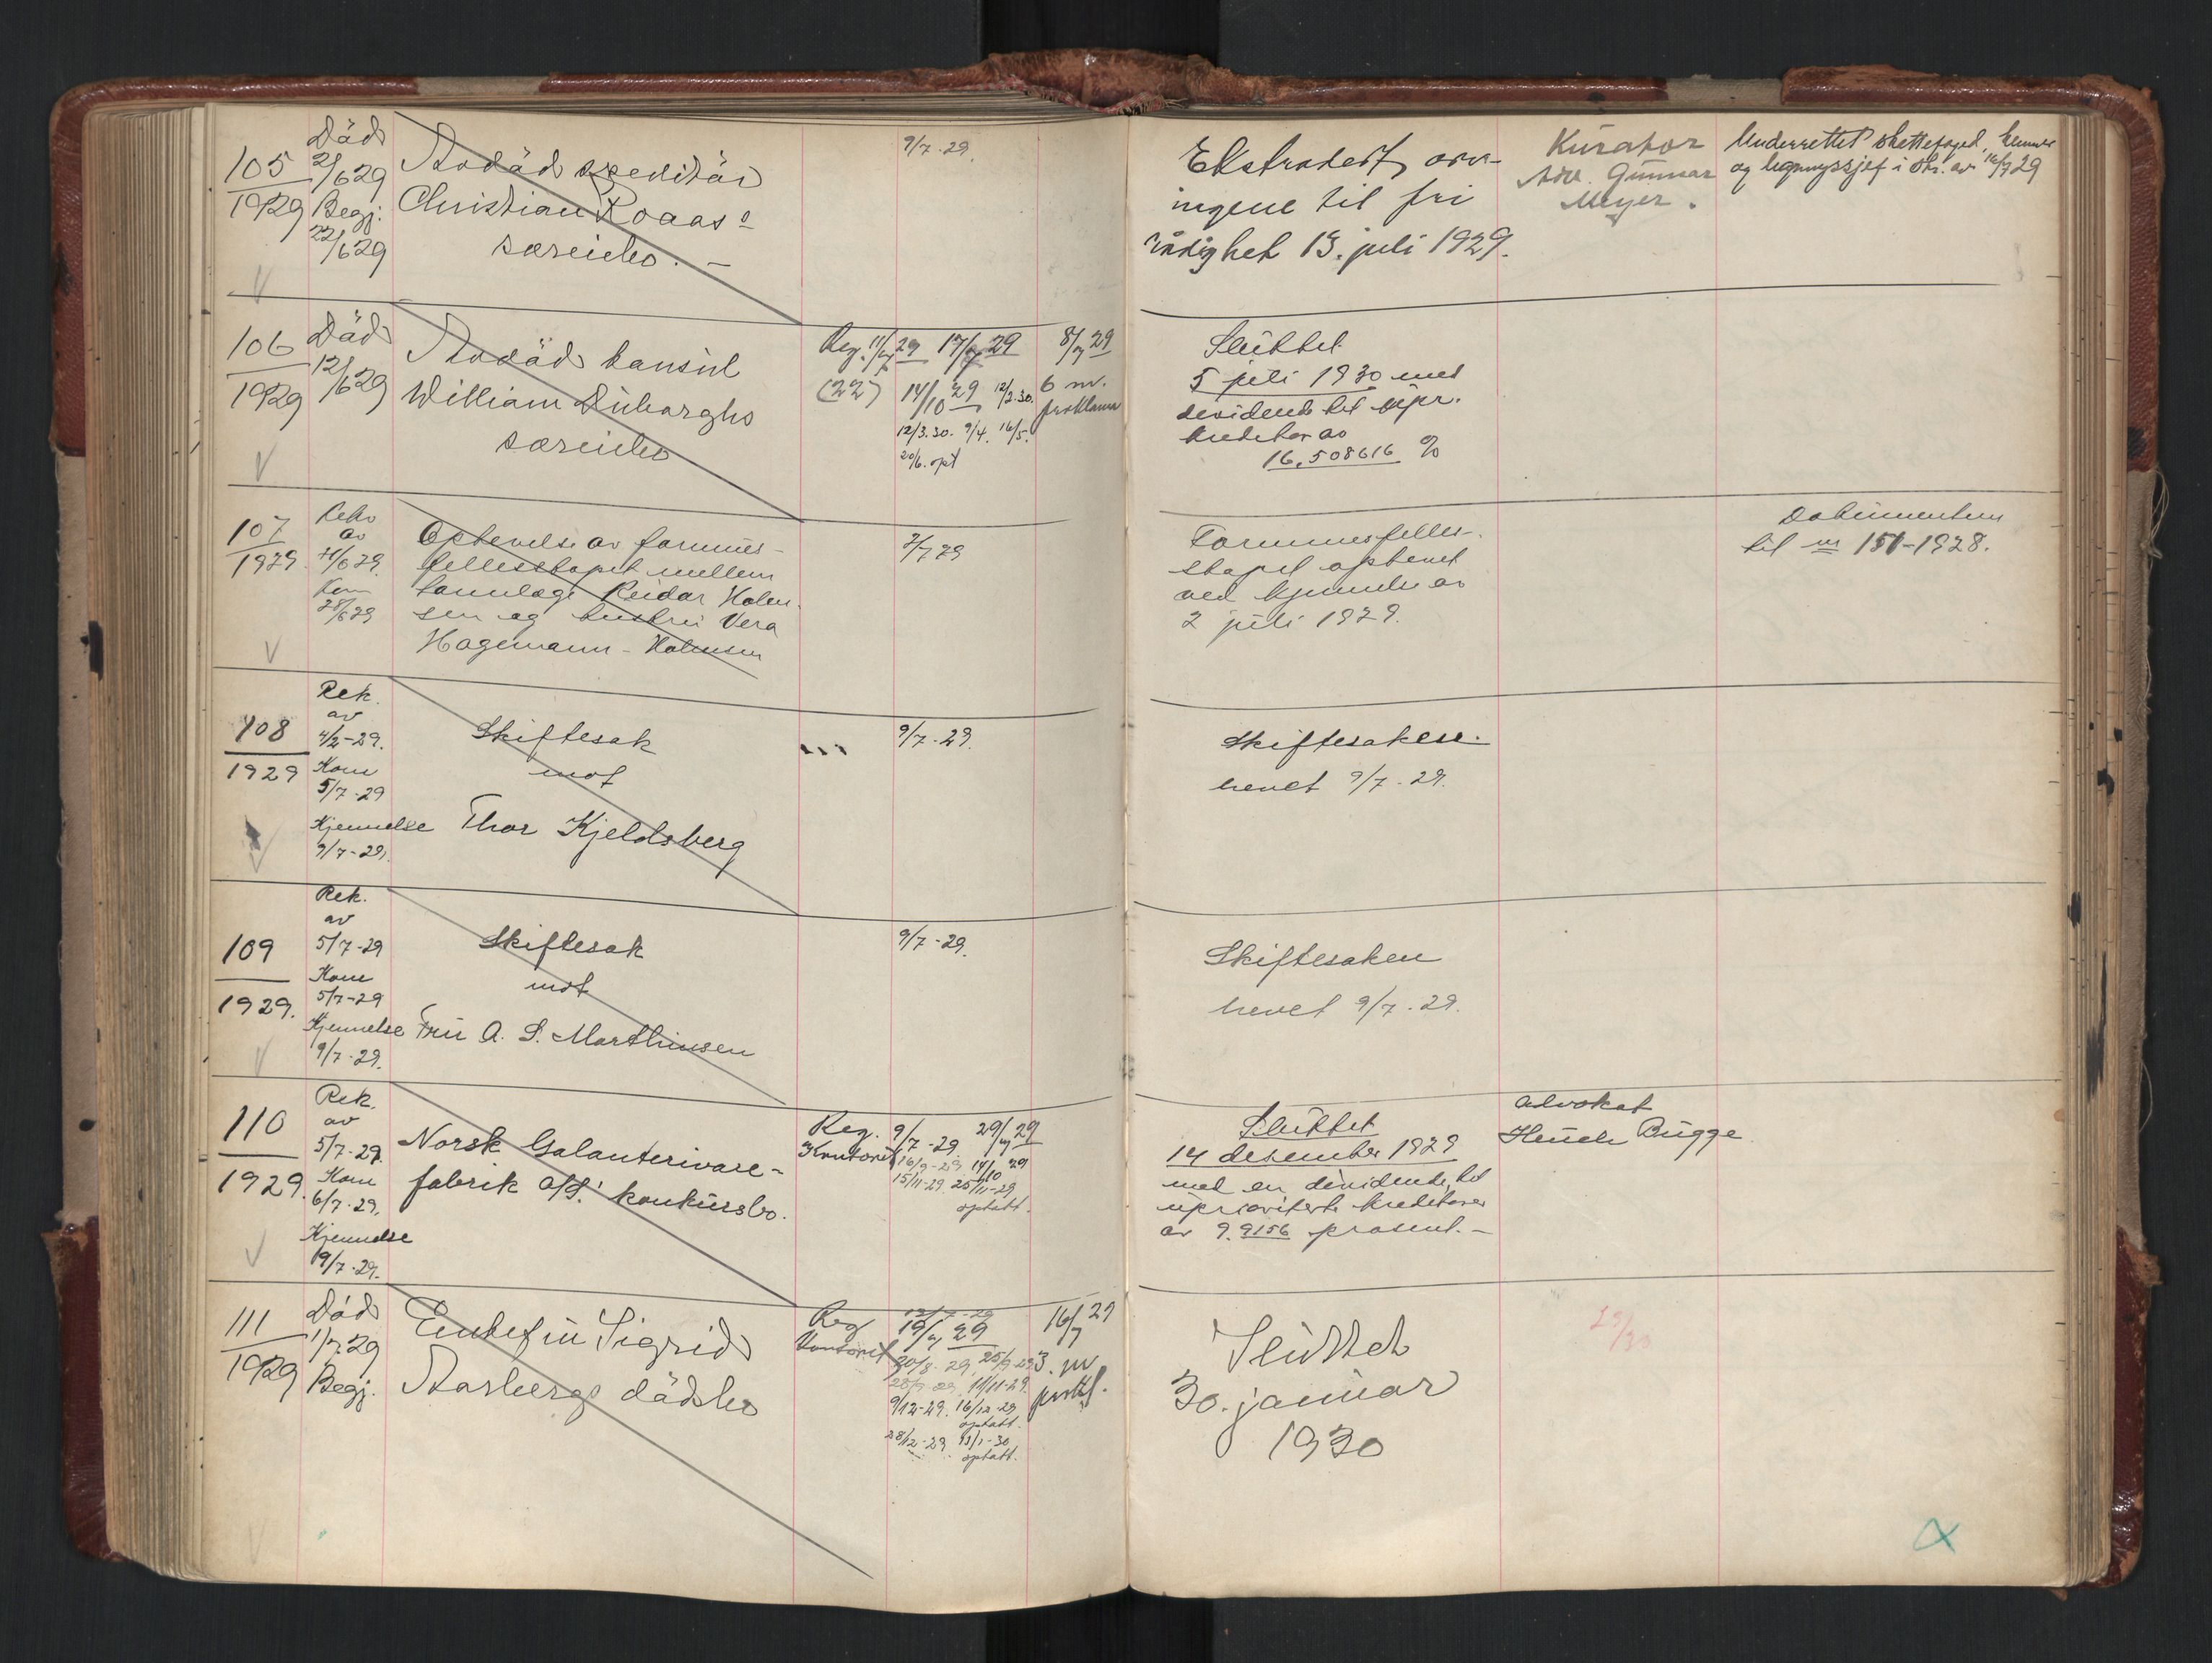 105
1929
Död
2/6 29
Begj:
22/6 29
Avdöd speditör
Christian Roaas'
særeiebo. -
9/7-29.
Ekstradert arv-
ingene til fri
rådighet 13. juli 1929.
Kurator
Adv. Gunnar
Meyer.
Underrettet skattefoged,
og ligningssjef i skr. av 16/7 29
106
1929
Död
12/6 29
Avdöd konsul
William Duborghs
særeiebo
Reg. 11/7 29
(22)
17/7 29
14/10 29 12/2.30.
12/3.30. 9/4. 16/5.
20/6. opt
8/7 29
6 m.
proklama
Sluttet
5 juli 1930 med
dividende til upr.
kreditor av
16,508616 %
107
1929
Rekv
av
21/6 29.
Kom
28/6 29
Ophevelse av formues-
fellesskapet mellem
tannlæge Reidar Holm-
sen og hustru Vera
Hagemann-Holmsen
2/7 29
Formuesfelles-
skapet ophevet
ved kjennelse av
2 juli 1929.
Dokumentene
til nr 151-1928.
108
1929
Rek.
av
4/2-29.
Kom
5/7-29
Kjennelse
9/7-29.
Skiftesak
mot
Thor Kjeldsberg
9/7-29.
Skiftesaken
hevet 9/7-29.
109
1929.
Rek.
av
5/7-29
Kom
5/7-29
Kjennelse
9/7-29.
Skiftesak
mot
Fru A. S. Marthinsen
9/7-29.
Skiftesaken
hevet 9/7-29.
110
1929.
Rek.
av
5/7-29.
Kom
6/7-29.
Kjennelse
9/7-29.
Norsk Galanterivare-
fabrik A/S.' konkursbo.
Reg.
Kontoret
9/7-29. 29/7 29
16/9-29 14/10 29
15/11-29. 25/11-29
optatt.
Sluttet
14 desember 1929
med en dividende til
uprioriterte kreditorer
av 9.9156 prosent.-
Advokat
Heuch Bugge
111
1929
Död
1/7 29
Begj.
Enkefru Sigrid
Aasbergs dödsbo
Reg
Kontoret
19/7 29
20/8-29, 25/9-29
28/9-29, 11/11-29.
9/12-29. 16/12-29
optatt.
28/12-29 13/1-30
optatt.
16/7 29
3. m
prokl.
Sluttet
30. januar
1930